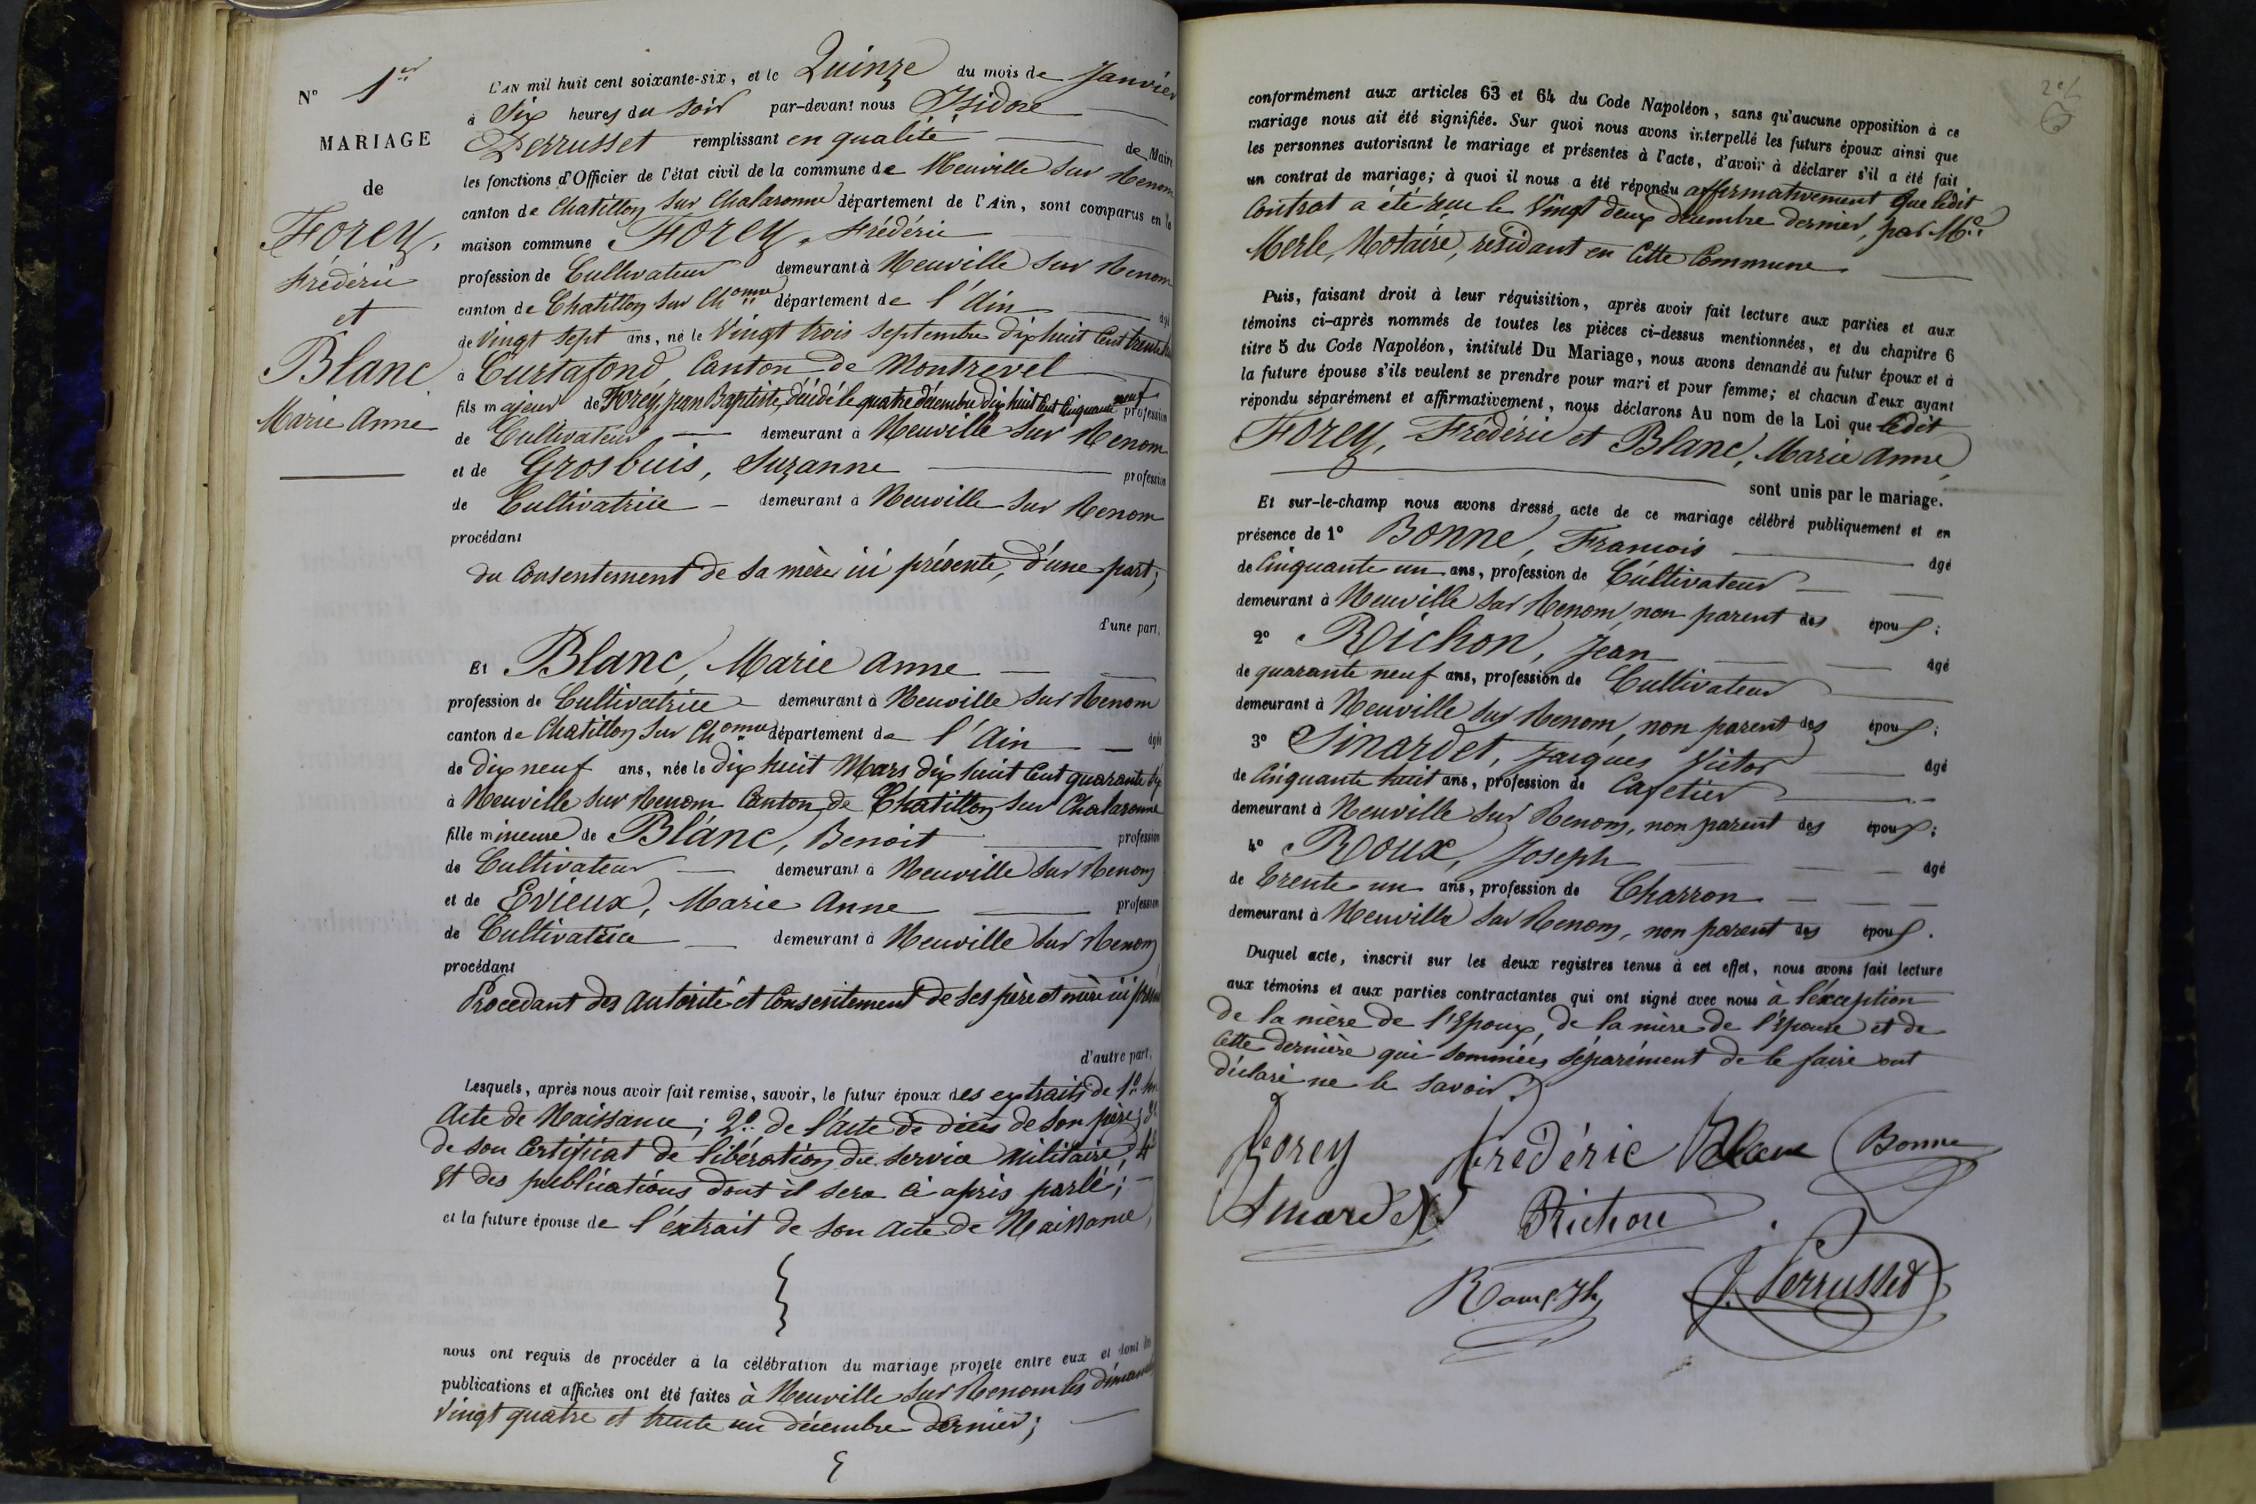 N° 1er
MARIAGE
de
Forey,
Frédéric
et
Blanc
Marie Anne
L'AN mil huit cent soixante-six, et le Quinze du mois de Janvier
à Six heures du soir par-devant nous Isidore
Perrusset remplissant en qualité de Maire
les fonctions d'Officier de l'état civil de la commune de Neuville sur Renom
canton de Chatillon sur Chalaronne département de l'Ain, sont comparus en la
maison commune Forey, Frédéric
profession de Cultivateur demeurant à Neuville sur Renom
canton de Chatillon sur Chonne département de l'Ain âgé
de Vingt sept ans, né le Vingt trois Septembre dix huit Cent trente
à Curtafond, Canton de Montrevel
fils majeur de Forey, jean Baptiste, décédé le quatre décembre dix huit Cent Cinquante neuf profession
de Cultivateur demeurant à Neuville sur Renom
et de Grosbuis, Suzanne profession
de Cultivatrice demeurant à Neuville sur Renom
procédant
du Consentement de sa mère ici présente, d'une part;
d'une part,
Et Blanc, Marie Anne
profession de Cultivatrice demeurant à Neuville sur Renom
canton de Chatillon sur Chonne département de l'Ain âgée
de dix neuf ans, née le dix huit Mars dix huit Cent quarante six
à Neuville sur Renom Canton de Chatillon sur Chalaronne
fille mineure de Blanc, Benoit profession
de Cultivateur demeurant à Neuville sur Renom
et de Evieux, Marie Anne profession
de Cultivatrice demeurant à Neuville sur Renom
procédant
Procédant des autorité et Consentement de ses père et mère ici
d'autre part,
Lesquels, après nous avoir fait remise, savoir, le futur époux des extraits de 1° son
Acte de Naissance; 2° de l'acte de décès de son père; 3°
de son Certificat de libération du service militaire; 4°
Et des publications dont il sera ci après parlé;
et la future épouse de l'éxtrait de son acte de Naissance,
nous ont requis de procéder à la célébration du mariage projeté entre eux et dont les
publications et affiches ont été faites à Neuville sur Renom les dimanches
Vingt quatre et trente un décembre dernier;
conformément aux articles 63 et 64 du Code Napoléon, sans qu'aucune opposition à ce
mariage nous ait été signifiée. Sur quoi nous avons interpellé les futurs époux ainsi que
les personnes autorisant le mariage et présentes à l'acte, d'avoir à déclarer s'il a été fait
un contrat de mariage; à quoi il nous a été répondu affirmativement Que ledit
Contrat a été reçu le Vingt deux décembre dernier, par Me
Merle, Notaire, résidant en Cette Commune
Puis, faisant droit à leur réquisition, après avoir fait lecture aux parties et aux
témoins ci-après nommés de toutes les pièces ci-dessus mentionnées, et du chapitre 6
titre 5 du Code Napoléon, intitulé Du Mariage, nous avons demandé au futur époux et à
la future épouse s'ils veulent se prendre pour mari et pour femme; et chacun d'eux ayant
répondu séparément et affirmativement, nous déclarons Au nom de la Loi que ledit
Forey, Frédéric et Blanc, Marie Anne,
sont unis par le mariage.
Et sur-le-champ nous avons dressé acte de ce mariage célébré publiquement et en
présence de 1° Bonne, François âgé
de Cinquante un ans, profession de Cultivateur
demeurant à Neuville sur Renom, non parent des époux;
2° Richon, Jean âgé
de quarante neuf ans, profession de Cultivateur
demeurant à Neuville sur Renom, non parent des époux;
3° Sinardet, Jacques Victor âgé
de Cinquante huit ans, profession de Cafetier
demeurant à Neuville sur Renom, non parent des époux;
4° Roux, Joseph âgé
de Trente un ans, profession de Charron
demeurant à Neuville sur Renom, non parent des époux.
Duquel acte, inscrit sur les deux registres tenus à cet effet, nous avons fait lecture
aux témoins et aux parties contractantes qui ont signé avec nous à l'éxception
de la mère de l'Epoux, de la mère de l'Epouse et de
Cette dernière qui sommées séparément de le faire ont
déclaré ne le savoir.
Forey frédéric Blanc Bonne
Sinardet Richon
Roux Jh J. Perrusset